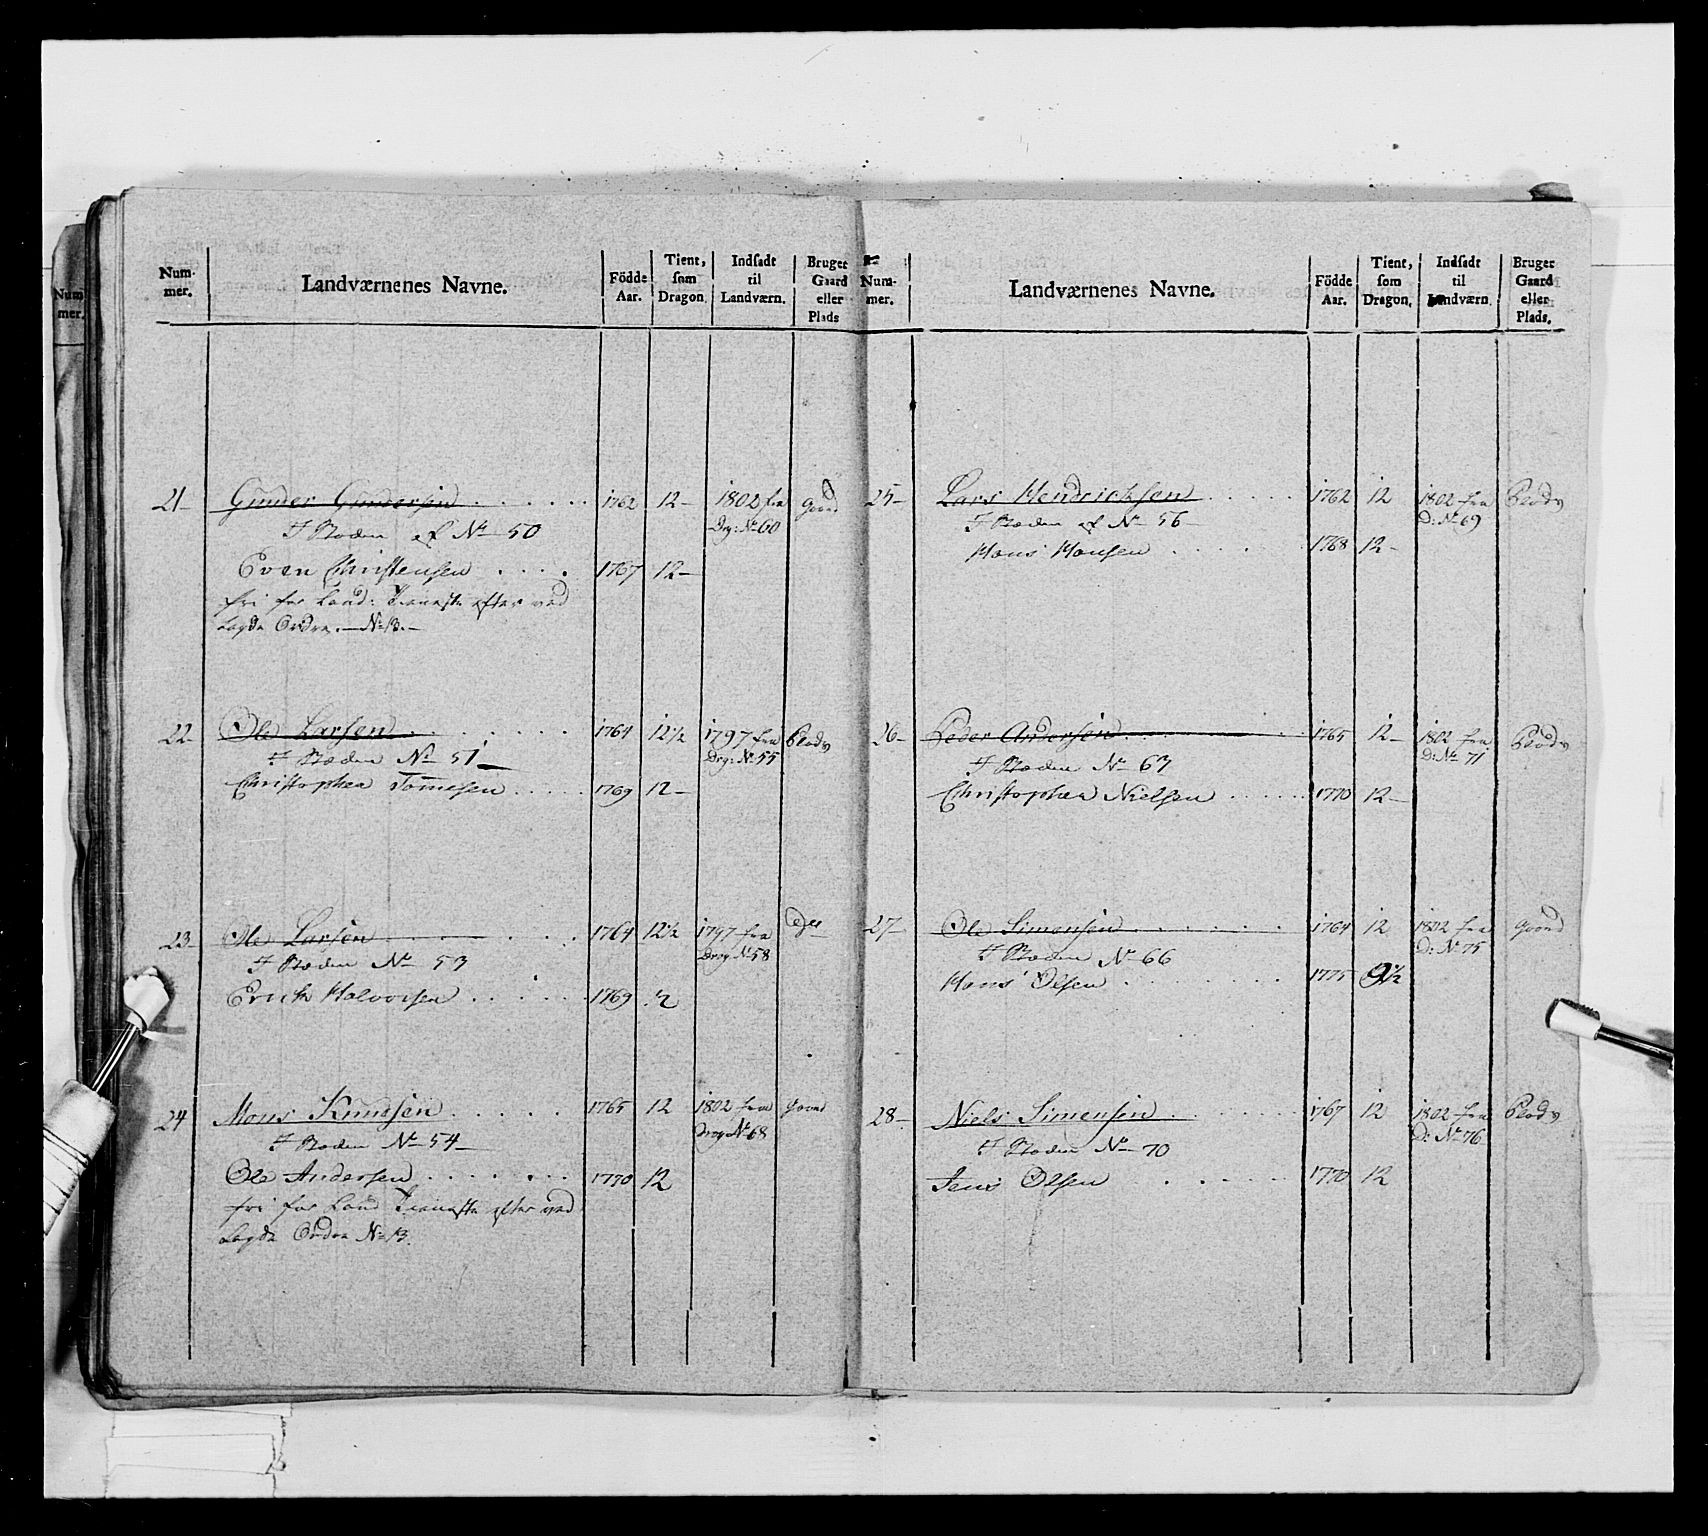 Num-
mer.
Num-
mer.
Landværnenes Navne.
Födde
Aar.
Tient,
som
Dragon.
Indsadt
til
Landværn.
Bruger
Gaard
eller
Plads
21 Gunder Gundersen 1762 12 1802 fra Gaard
I Steden af No 50 Drg: No 60
Even Christensen 1767 12
fri for Land: Tieneste efter ved
Lagde Ordre No 13.
22 Ole Larsen 1764 12½ 1797 fra Plads
I Steden No 51 Drg: No 55
Christopher Tomesen 1769 12
23 Ole Larsen 1764 12½ 1797 fra
I Steden No 53 Drag No 58
Erich Halvorsen 1769 12
24 Mons Knudsen 1765 12 1802 fra Gaard
I Steden No 54 Drag No 68
Ole Andersen 1770 12
fri for Land Tieneste efter ved
Lagde Ordre No 13.
Num-
mer.
Landværnenes Navne.
Födde
Aar.
Tient,
som
Dragon.
Indsadt
til
Landværn.
Bruger
Gaard
eller
Plads.
25 Lars Hendrichsen 1762 12 1802 fra Plads
I Steden af No 56 D: No 69
Hans Hansen 1768 12
26 Peder Andersen 1765 12 1802 fra Plads
I Steden No 63 D: No 71
Christopher Nielsen 1770 12
27 Ole Simensen 1764 12 1802 fra Gaard
I Steden No 66 D: No 75
Hans Olsen 1775 9½
28 Niels Simensen 1767 12 1802 fra Plads
I Steden No 70 D: No 76
Jens Olsen 1770 12